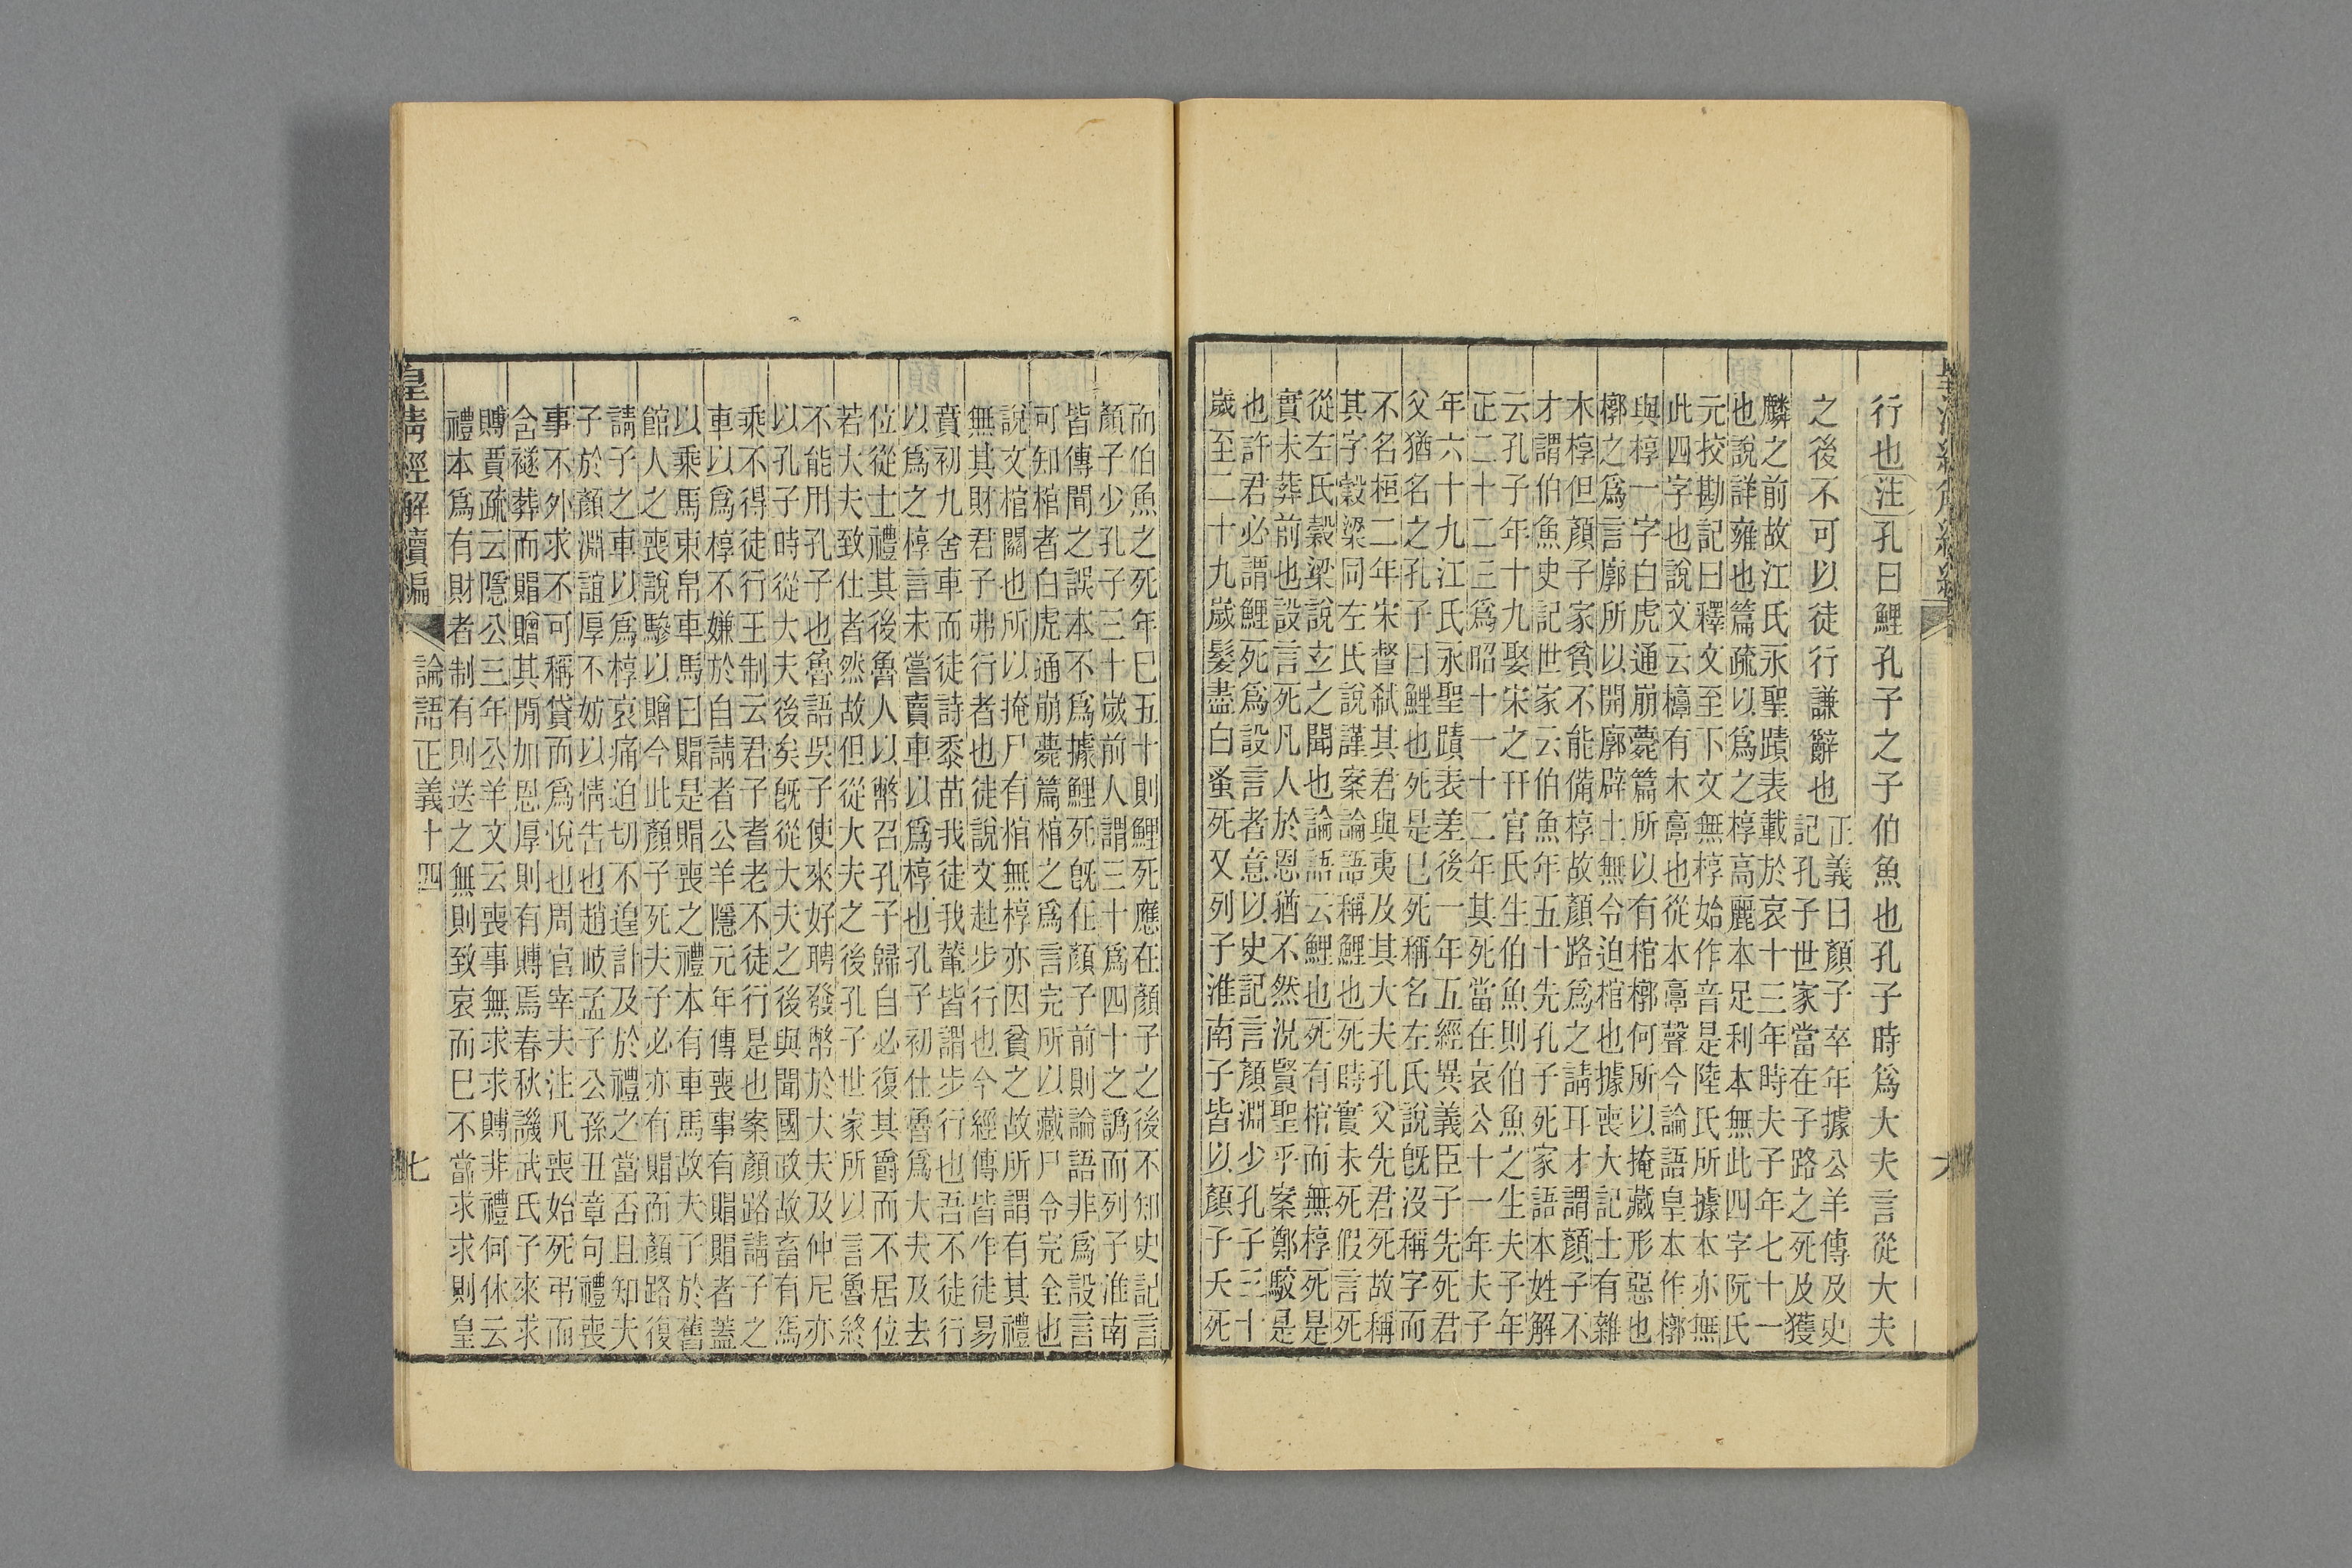 行也注孔曰鯉孔子之子伯魚也孔子時爲大夫言從大夫
之後不可以徒行謙辭也
正義曰顏子卒年據公羊傳及史
記孔子世家當在子路之死及獲
麟之前故江氏永聖蹟表載於哀十三年時夫子年七十一
也說詳雍也篇疏以爲之椁高麗本足利本無此四字阮氏
元挍勘記曰釋文至下文無椁始作音是陸氏所據本亦無
此四字也說文云有木𩫏也從木𩫏聲今論語皇本作槨
與椁一字白虎通崩薨篇所以有棺槨何所以掩藏形惡也
槨之爲言廓所以開廓辟土無令迫棺也據喪大記士有雜
木椁但顏子家貧不能備椁故顏路爲之請耳才謂顏子不
才謂伯魚史記世家云伯魚年五十先孔子死家語本姓解
云孔子年十九娶宋之幵官氏生伯魚則伯魚之生夫子年
正二十二三爲昭十一十二年其死當在哀公十一年夫子
年六十九江氏永聖蹟表差後一年五經異義臣子先死君
父猶名之孔子曰鯉也死是已死稱名左氏說旣沒稱字而
不名桓二年宋督弒其君與夷及其大夫孔父先君死故稱
其字穀梁同左氏說謹案論語稱鯉也死時實未死假言死
從左氏穀梁說玄之聞也論語云鯉也死有棺而無椁死是
實未葬前也設言死凡人於恩猶不然況賢聖乎案鄭駁是
也許君必謂鯉死爲設言者意以史記言顏淵少孔子三十
歲至二十九歲髮盡白蚤死又列子淮南子皆以顏子夭死
而伯魚之死年已五十則鯉死應在顏子之後不知史記言
顏子少孔子三十歲前人謂三十爲四十之譌而列子淮南
皆傳聞之誤本不爲據鯉死旣在顏子前則論語非爲設言
可知棺者白虎通崩薨篇棺之爲言完所以藏尸令完全也
說文棺關也所以掩尸有棺無椁亦因貧之故所謂有其禮
無其財君子弗行者也徒說文步行也今經傳皆作徒易
賁初九舍車而徒詩黍苗我徒我輦皆謂步行也吾不徒行
以爲之椁言未嘗賣車以爲椁也孔子初仕魯爲大夫及去
位從士禮其後魯人以幣召孔子歸自必復其爵而不居位
若大夫致仕者然故但從大夫之後孔子世家所以言魯終
不能用孔子也魯語吳子使來好聘發幣於大夫及仲尼亦
以孔子時從大夫後矣旣從大夫之後與聞國政故畜有馬
乘不得徒行王制云君子耆老不徒行是也案顏路請子之
車以爲椁不嫌於自請者公羊隱元年傳喪事有賵賵者蓋
以乘馬束帛車馬曰賵是賵喪之禮本有車馬故夫子於舊
館人之喪說驂以贈今此顏子死夫子必亦有賵而顏路復
請子之車以爲椁哀痛迫切不遑計及於禮之當否且知夫
子於顏淵誼厚不妨以情告也趙岐孟子公孫丑章句禮喪
事不外求不可稱貸而爲悅也周官宰夫注凡喪始死弔而
含襚葬而賵贈其閒加恩厚則有賻焉春秋譏武氏子來求
賻賈疏云隱公三年公羊文云喪事無求求賻非禮何休云
禮本爲有財者制有則送之無則致哀而已不當求求則皇
皇清經解續編 論語正義十四 七